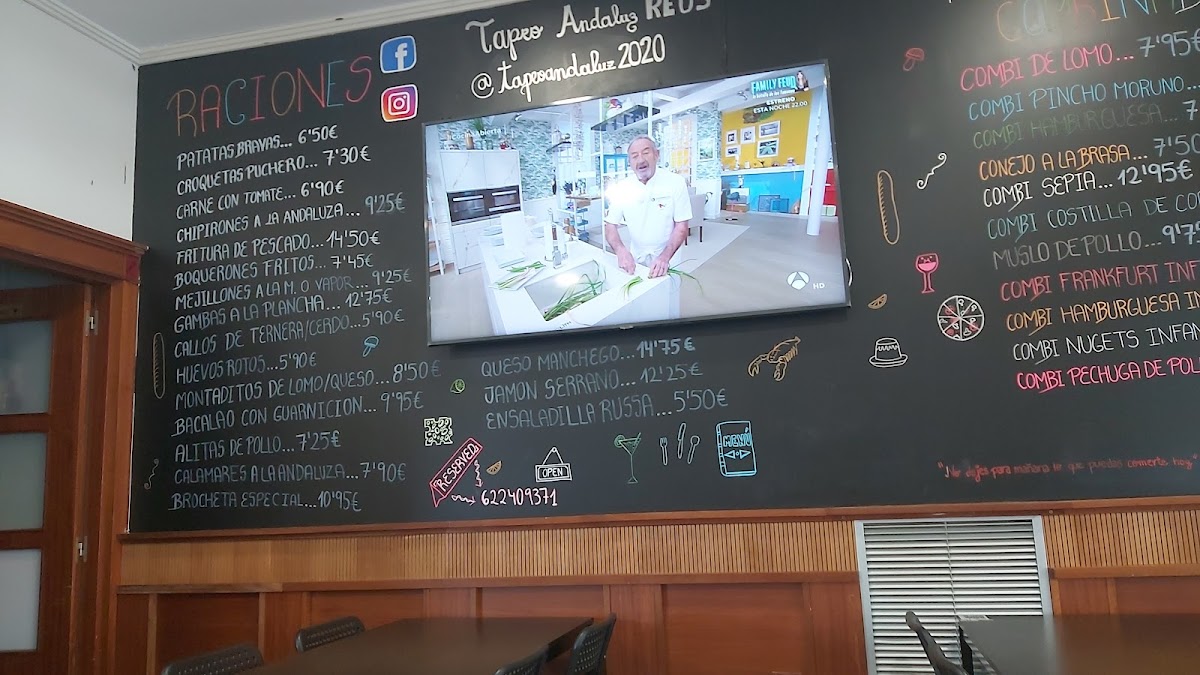 Tapeo Andaluz REUS
@tapeoandaluz2020
RACIONES
PATATAS BRAVAS... 6'50€
CROQUETAS PUCHERO... 7'30€
CARNE CON TOMATE... 6'90€
CHIPIRONES A LA ANDALUZA... 9'25€
FRITURA DE PESCADO... 14'50€
BOQUERONES FRITOS... 7'45€
MEJILLONES A LA M. O VAPOR... 9'25€
GAMBAS A LA PLANCHA... 12'75€
CALLOS DE TERNERA/CERDO... 5'90€
HUEVOS ROTOS... 5'90€
MONTADITOS DE LOMO/QUESO... 8'50€
BACALAO CON GUARNICION... 9'95€
ALITAS DE POLLO... 7'25€
CALAMARES A LA ANDALUZA... 7'90€
BROCHETA ESPECIAL... 10'95€
QUESO MANCHEGO... 14'75€
JAMON SERRANO... 12'25€
ENSALADILLA RUSSA... 5'50€
RESERVED
OPEN
MENÚ
622409371
FAMILY FEUD
ESTRENO
ESTA NOCHE 22.00
HD
COMBI DE LOMO... 7'95€
COMBI PINCHO MORUNO...
COMBI HAMBURGUESA... 7
CONEJO A LA BRASA... 7'50
COMBI SEPIA... 12'95€
COMBI COSTILLA DE CO
MUSLO DE POLLO... 9'7
COMBI FRANKFURT INF
COMBI HAMBURGUESA IN
COMBI NUGETS INFAN
COMBI PECHUGA DE POL
"No dejes para mañana lo que puedas comerte hoy"